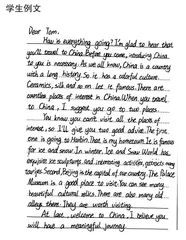 学生例文
Dear Tom,
How is everything going? I'm glad to hear that
you'll travel to China. Before you come, introducing China
to you is necessary. As we all know, China is a country
with a long history. So it has a colorful culture.
Ceramics, silk and so on. Let it famous. There are
countless places of interest in China. When you travel
to China, I suggest you go two places.
You know you can't visit all the places of
interest, so I'll give you two good advice. The first
one is going to Harbin. That is my hometown. It is famous
for ice and snow. In winter, Ice and Snow World has
exquisite ice sculptures. And interesting activities, attracts many
tourists. Second, Beijing is the capital of our country. The Palace
Museum is a good place to visit. You can see many
beautiful cultural relics. There are also many old
alleys there. They are worth visiting.
At last, welcome to China. I believe you
will have a meaningful journey.